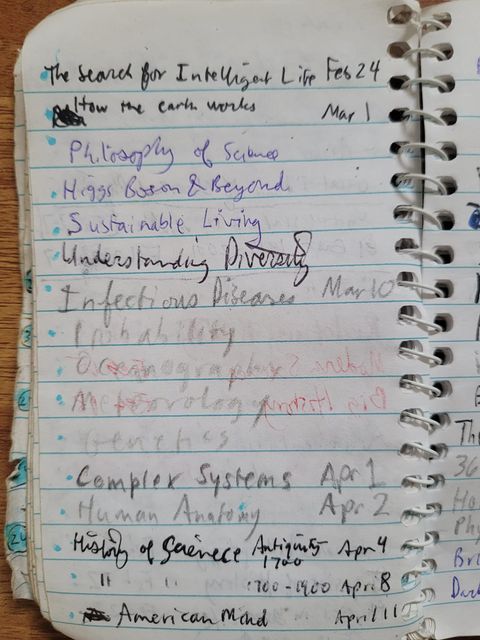 The Search for Intelligent Life Feb 24
How the earth works Mar 1
Philosophy of Science
Higgs Boson & Beyond
Sustainable Living
Understanding Diversity
Infectious Diseases Mar 10
Probability
Oceanography
Meteorology
Genetics
Complex Systems Apr 1
Human Anatomy Apr 2
History of Science Antiquity 1700 Apr 4
" " 1700-1900 April 8
American Mind April 11
The
36
Ho
Phy
Br
Dark